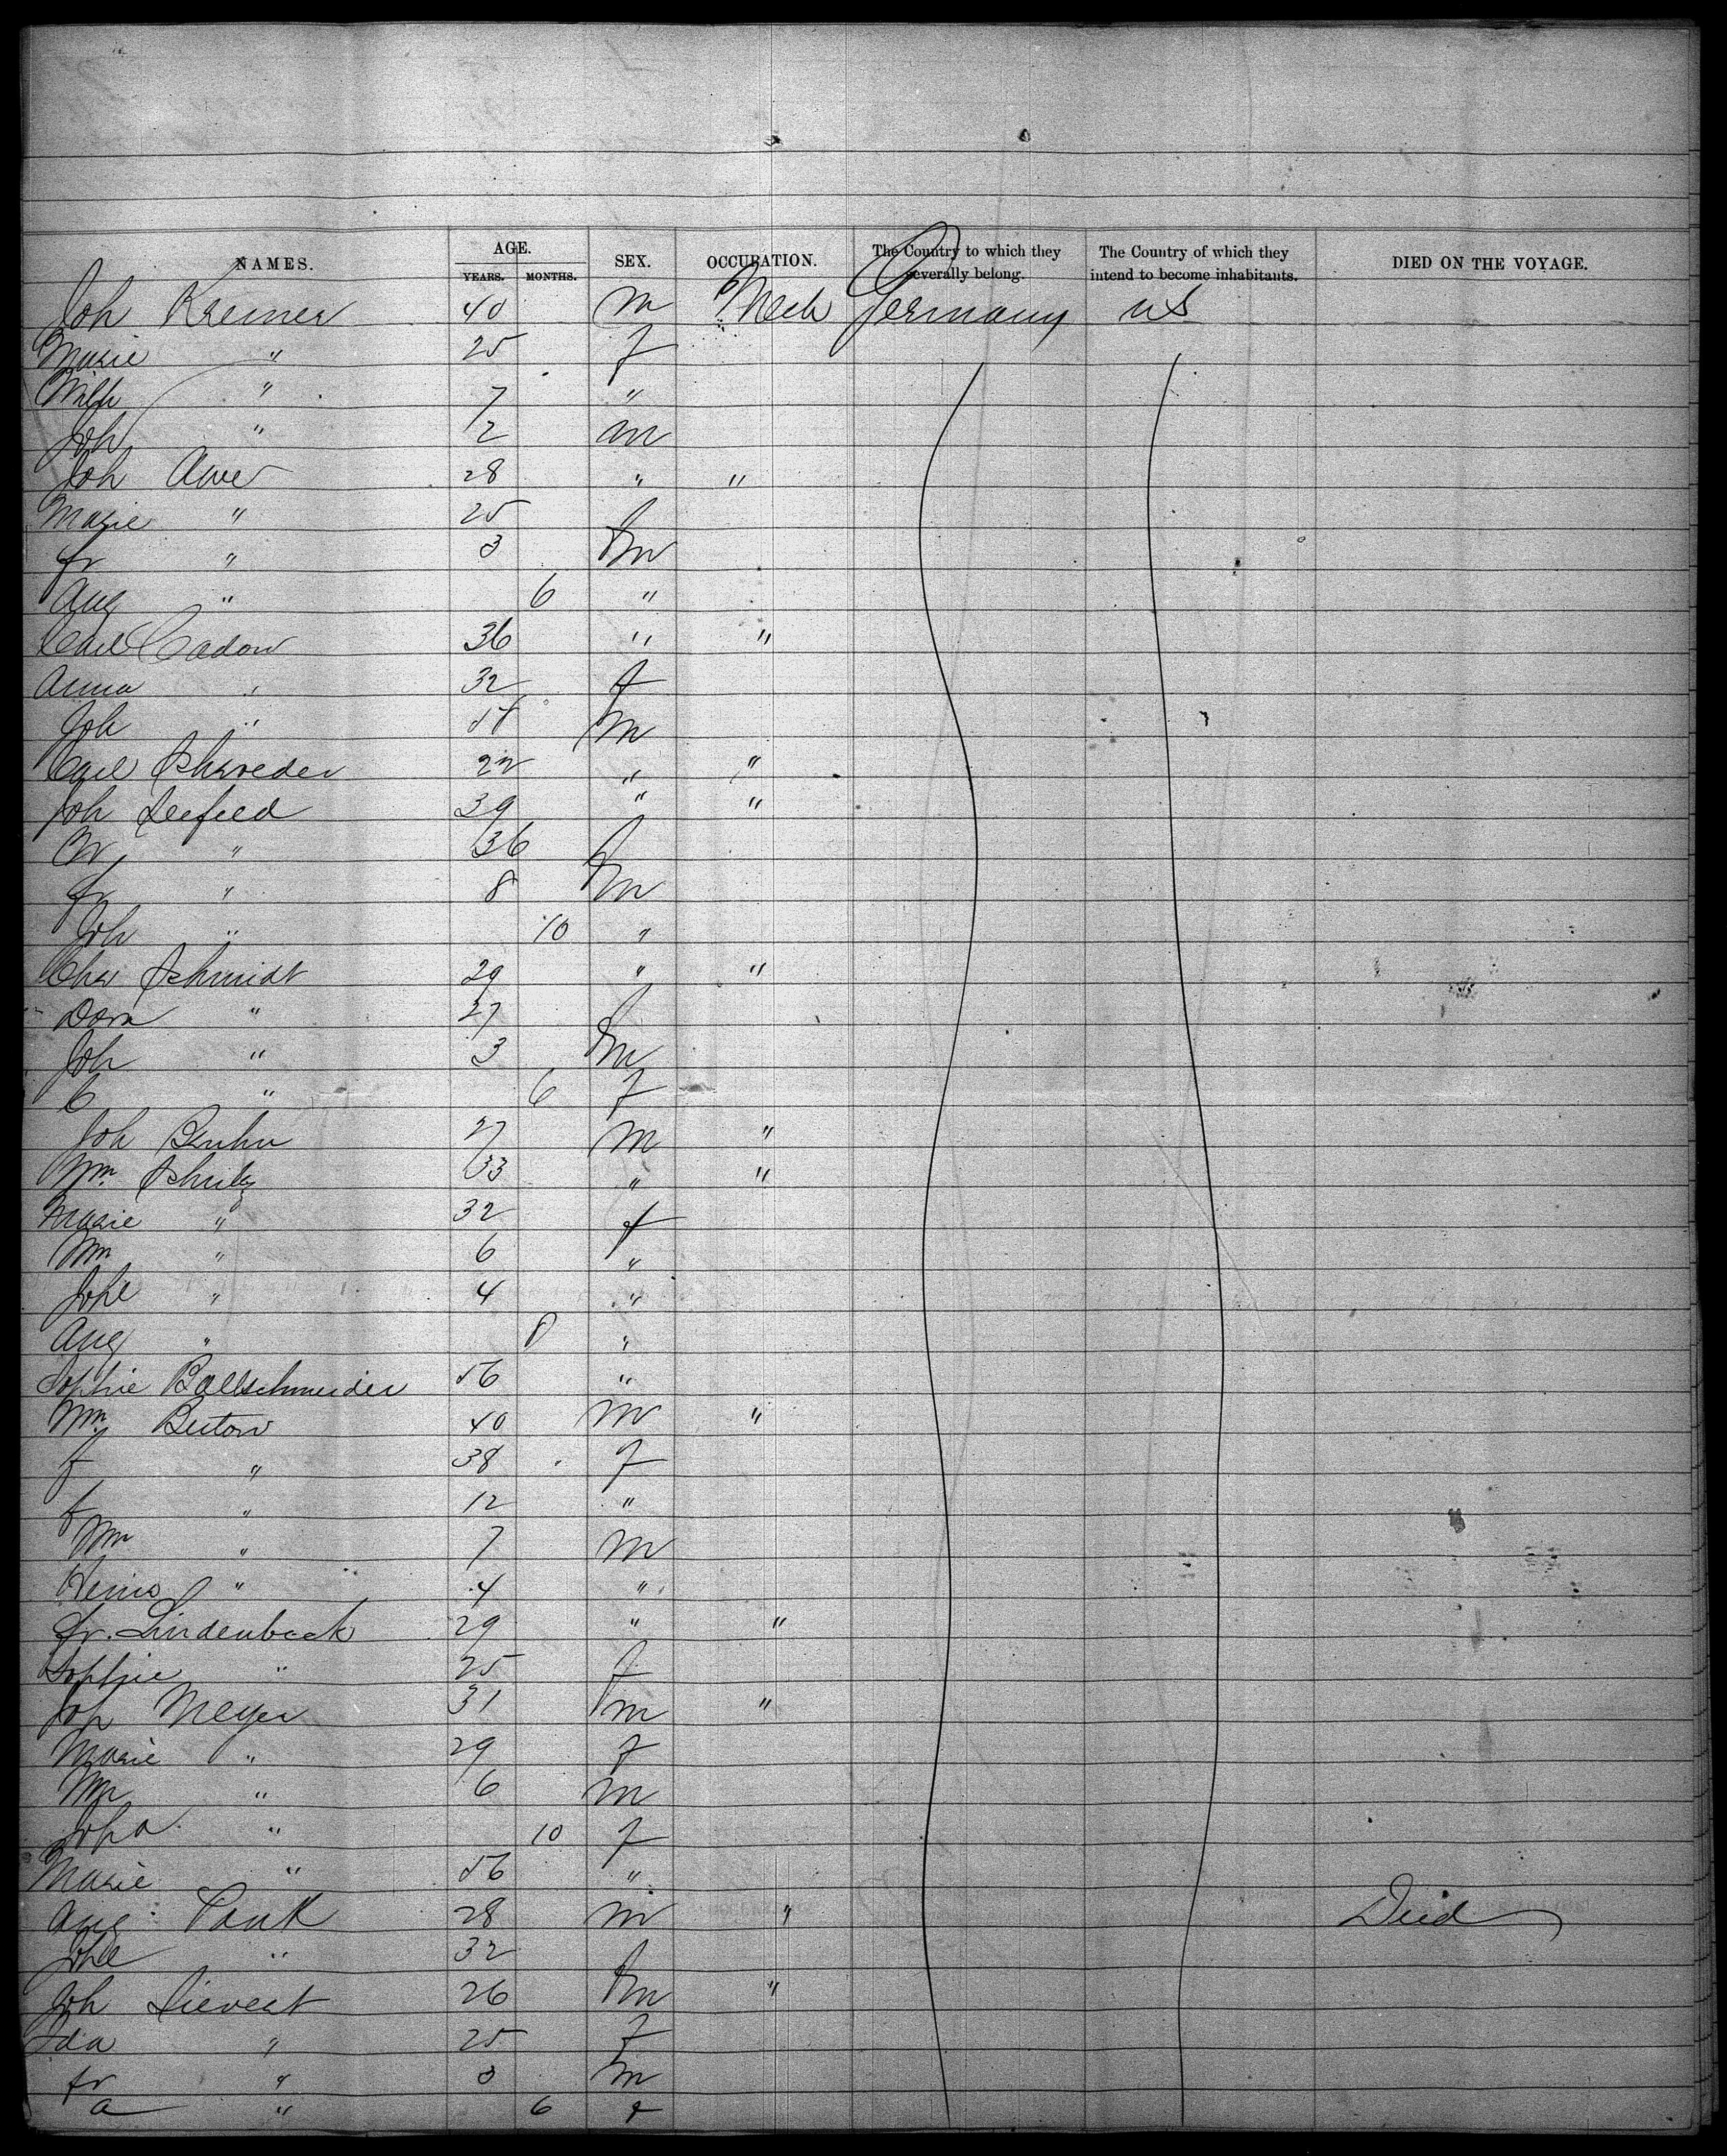 NAMES. AGE. YEARS. MONTHS. SEX. OCCUPATION. The Country to which they severally belong. The Country of which they intend to become inhabitants. DIED ON THE VOYAGE.
Joh Kremer 40 m Mech Germany US
Marie " 25 f
" 7 "
Joh " 2 m
Joh 28 " "
Marie " 25 f
fr " 3 m
Aug " 6 "
Carl Cadow 36 " "
Anna " 32 f
Joh " m
Carl Schroeder 22 " "
Joh Seefeld 39 " "
" 36 f
fr " 8 m
Joh " 10 "
Schmidt 29 " "
Dora " 27 f
Joh " 3 m
C " 6 f
Joh 27 m "
Wm. Schulz 33 " "
Marie " 32 f
Wm " 6 "
Johe " 4 "
Aug " 8 "
Sophie Ballschmeider 56 "
Wm. Beutow 40 m "
f " 38 f
f " 12 "
Wm " 7 m
" 4 "
fr. Lindenbeck 29 " "
Sophie " 25 f
Joh Meyer 31 m "
Marie " 29 f
Wm " 6 m
Joha " 10 f
Marie " 56 "
Aug Pank 28 m " Died
Johe " 32 f
Joh Sievert 26 m "
Ida " 25 f
fr " 3 m
a " 6 f